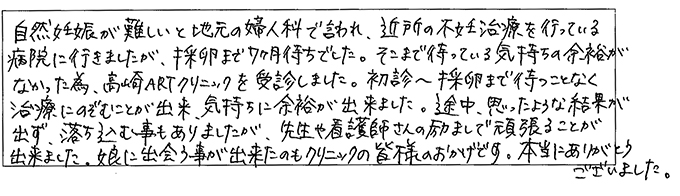 自然妊娠が難しいと地元の婦人科で言われ、近所の不妊治療を行っている
病院に行きましたが、採卵まで7ヶ月待ちでした。そこまで待っている気持ちの余裕が
なかった為、高崎ARTクリニックを受診しました。初診〜採卵まで待つことなく
治療にのぞむことが出来、気持ちに余裕が出来ました。途中、思ったような結果が
出ず、落ち込む事もありましたが、先生や看護師さんの励ましで頑張ることが
出来ました。娘に出会う事が出来たのもクリニックの皆様のおかげです。本当にありがとう
ございました。